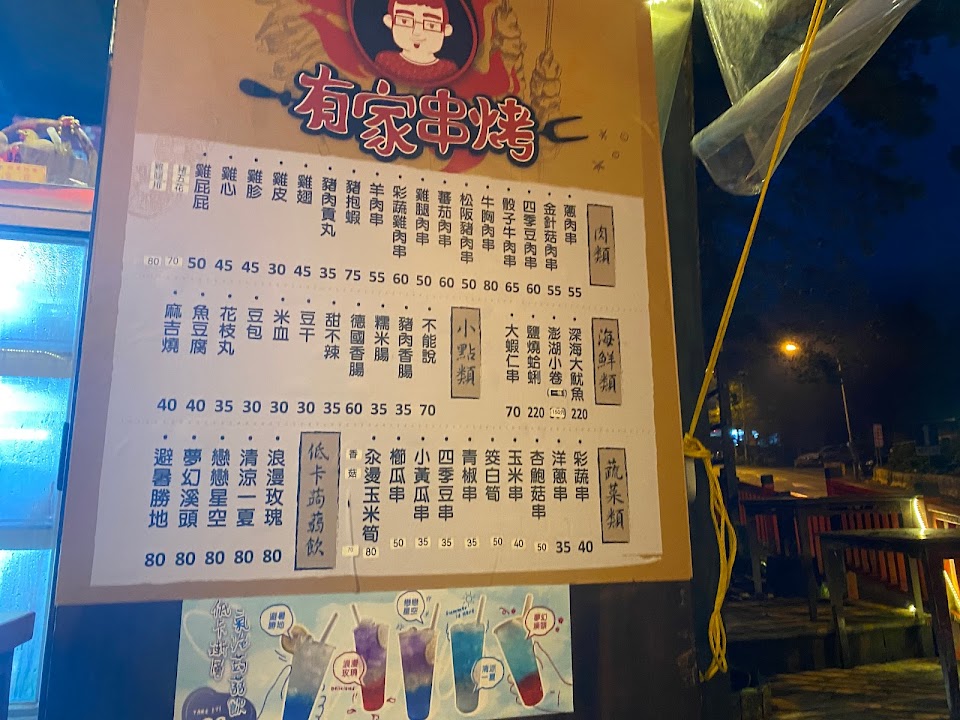 有家串烤
肉類
蔥肉串 55
金針菇肉串 55
四季豆肉串 60
骰子牛肉串 65
牛胸肉串 80
松阪豬肉串 50
蕃茄肉串 60
雞腿肉串 50
彩蔬雞肉串 60
羊肉串 55
豬抱蝦 75
豬肉貢丸 35
雞翅 45
雞皮 30
雞胗 45
雞心 45
雞屁屁 50
豬五花 70
80
海鮮類
深海大魷魚 220
澎湖小卷
鹽燒蛤蜊 220
大蝦仁串 70
小點類
不能說 70
豬肉香腸 35
糯米腸 35
德國香腸 60
甜不辣 35
豆干 30
米血 30
豆包 30
花枝丸 35
魚豆腐 40
麻吉燒 40
蔬菜類
彩蔬串 40
洋蔥串 35
杏鮑菇串 50
玉米串 40
筊白筍 50
青椒串 35
四季豆串 35
小黃瓜串 35
櫛瓜串 50
汆燙玉米筍 80
香菇 70
低卡蒟蒻飲
浪漫玫瑰 80
清涼一夏 80
戀戀星空 80
夢幻溪頭 80
避暑勝地 80
低卡漸層
避暑勝地
浪漫玫瑰
戀戀星空
清涼一夏
夢幻溪頭